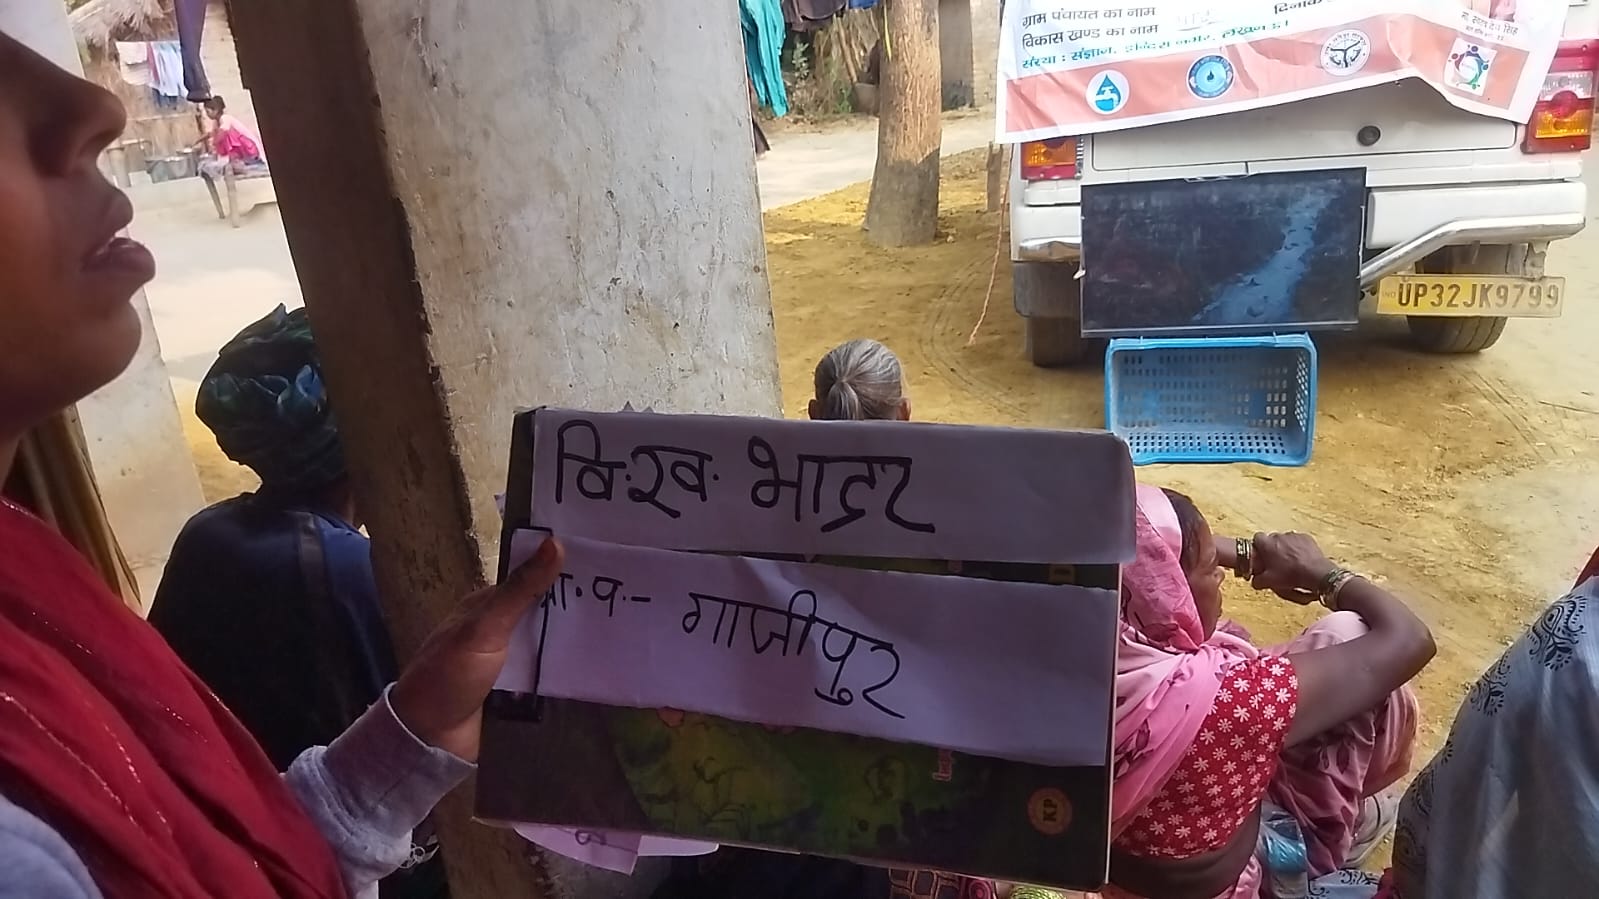 ग्राम पंचायत का नाम
विकास खण्ड का नाम
संस्था : संज्ञान, इन्दिरा नगर, लखनऊ।
UP32JK9799
वि.ख. भादर
प.- गाजीपुर
KP